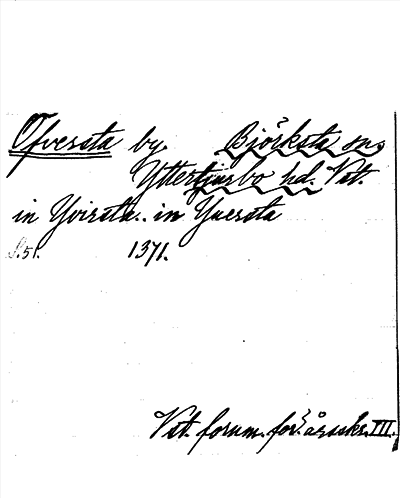 Öfversta by. Björksta sn.
Yttertjurbo hd. Vst.
in Yvirsta.. in Yuersta
S. 51. 1371.
Vst. fornm. för:s årsskr. III.